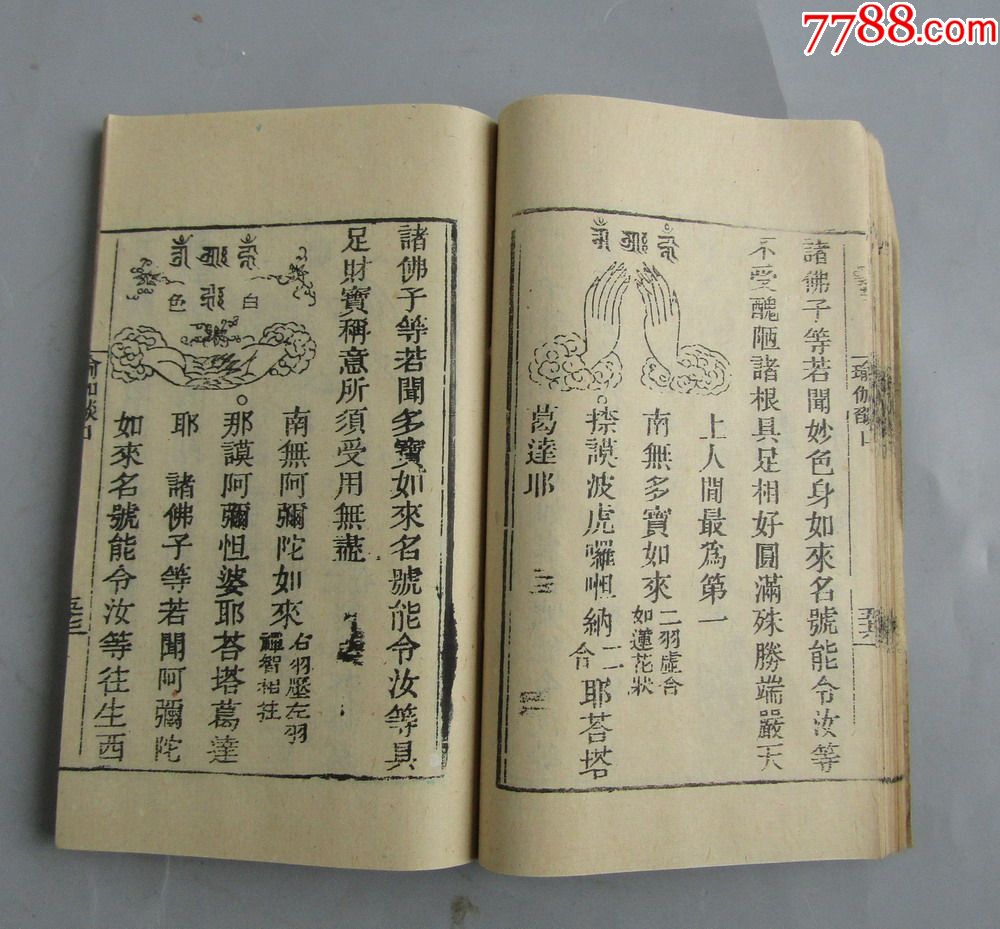 7788.com
諸佛子等若聞妙色身如來名號能令汝等
不受醜陋諸根具足相好圓滿殊勝端嚴天
上人間最為第一
南無多寶如來
二羽虛合
如蓮花狀
捺謨波虎囉怛納
二
合
耶荅塔
葛達耶
諸佛子等若聞多寶如來名號能令汝等具
足財寶稱意所須受用無盡
南無阿彌陀如來
右羽壓左羽
禪智相拄
那謨阿彌怛婆耶荅塔葛達
耶 諸佛子等若聞阿彌陀
如來名號能令汝等往生西
白
色